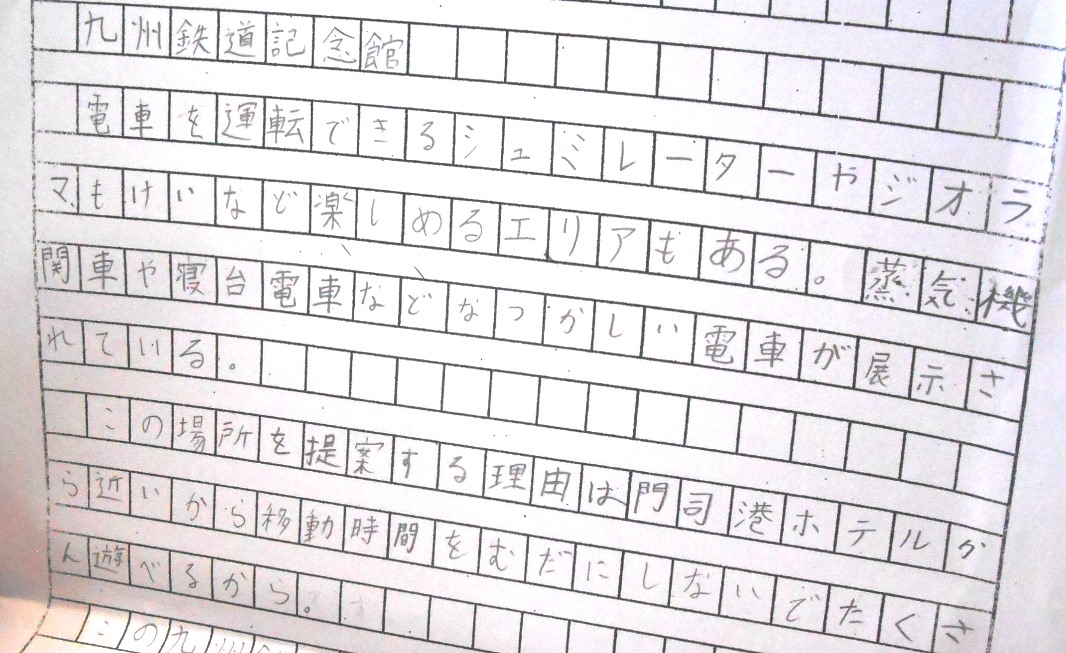 九州鉄道記念館
電車を運転できるシュミレーターやジオラ
マ、もけいなど楽しめるエリアもある。蒸気機
関車や寝台電車などなつかしい電車が展示さ
れている。
この場所を提案する理由は門司港ホテルか
ら近いから移動時間をむだにしないでたくさ
ん遊べるから。
この九州